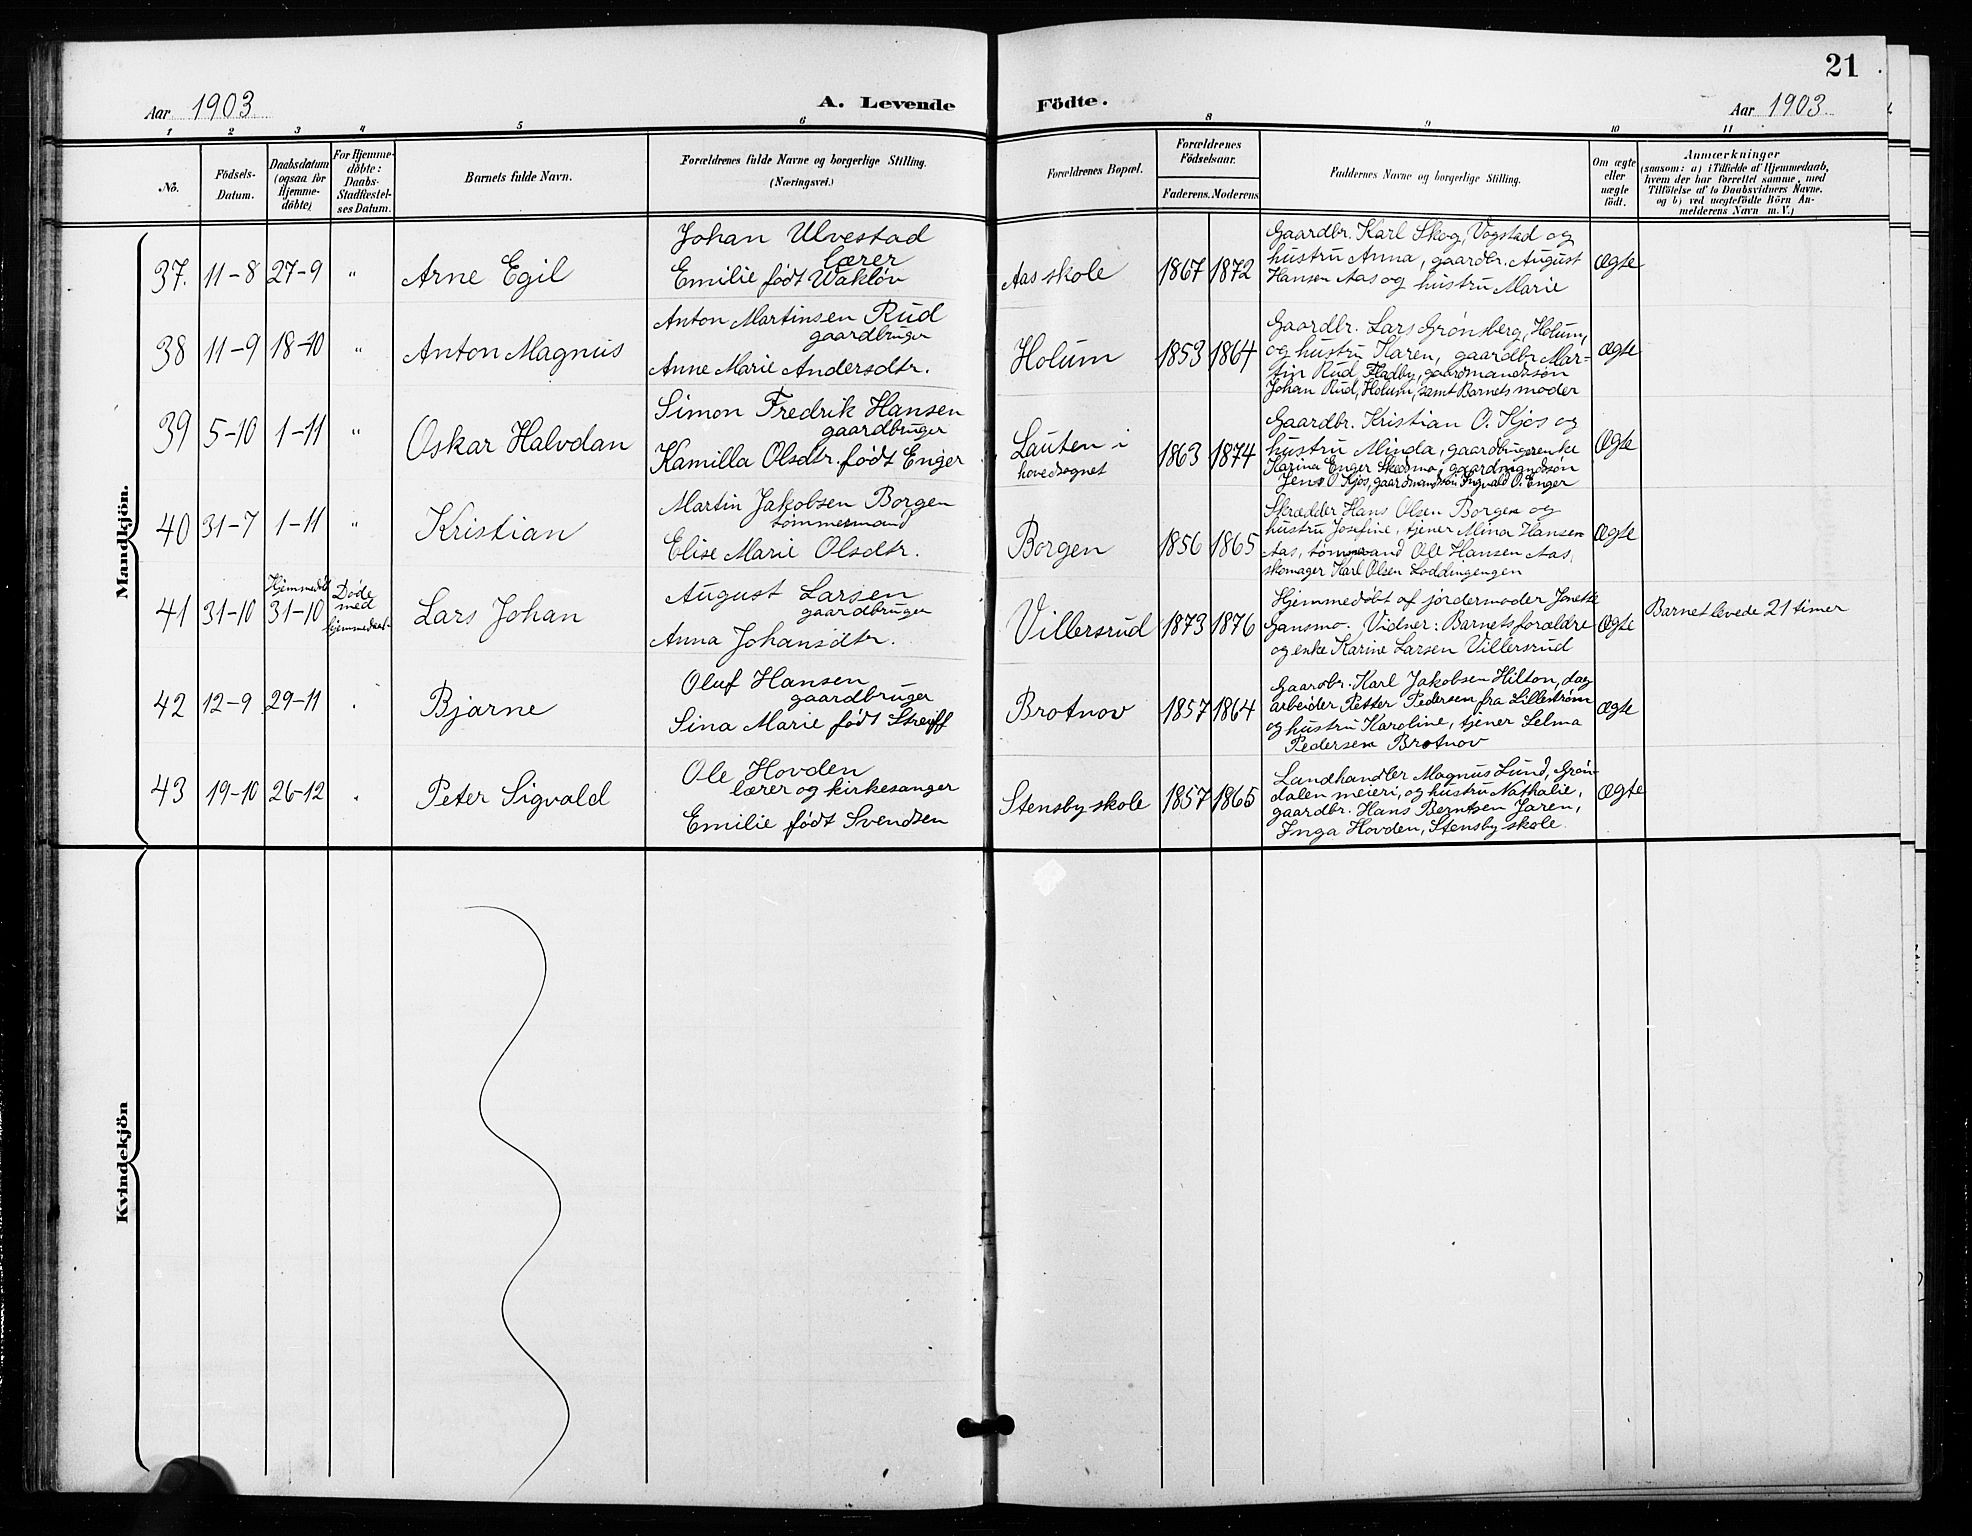 21
Aar 1903 A. Levende Födte. Aar 1903
1 2 3 4 5 6 8 9 10 11
No.
Födsels-
Datum.
Daabsdatum
(ogsaa for
Hjemme-
döbte)
For Hjemme-
döbte:
Daabs-
Stadfæstel-
ses Datum.
Barnets fulde Navn.
Forældrenes fulde Navne og borgerlige Stilling.
(Næringsvei.)
Forældrenes Bopæl.
Forældrenes
Födselsaar.
Faderens. Moderens
Faddernes Navne og borgerlige Stilling.
Om ægte
eller
uægte
födt.
Anmærkninger
(saasom: a) i Tilfælde af Hjemmedaab,
hvem der har forrettet samme, med
Tilföielse af to Daabsvidners Navne.
og b) ved uægtefödte Börn An-
melderens Navn m. V.)
Mandkjön.
37. 11-8 27-9 " Arne Egil
Johan Ulvestad
lærer
Emilie født Wakløv
Aas skole 1867 1872
Gaardbr. Karl Skog, Vogstad og
hustru Anna, gaardbr. August
Hansen Aas og hustru Marie
Ægte
38 11-9 18-10 " Anton Magnus
Anton Martinsen Rud
gaardbruger
Anne Marie Andersdtr.
Holum 1853 1864
Gaardbr. Lars Grønsberg, Holum,
og hustru Karen, gaardbr. Mar-
tin Rud Fladby, gaardmandssøn
Johan Rud, Holum, samt Barnets moder
Ægte
39 5-10 1-11 " Oskar Halvdan
Simon Fredrik Hansen
gaardbruger
Kamilla Olsdtr. født Enger
Lauten i
hovedsognet
1863 1874
Gaardbr. Kristian O. Kjos og
hustru Minda, gaardbrugerenke
Karina Enger Skedsmo, gaardmandssøn
Jens O Kjos, gaardmandssøn Ingvald O. Enger
Ægte
40 31-7 1-11 " Kristian
Martin Jakobsen Borgen
tømmermand
Elise Marie Olsdtr.
Borgen 1856 1865
Skrædder Hans Olsen Borgen og
hustru Josefine, tjener Mina Hansen
Aas, tømmermand Ole Hansen Aas,
skomager Karl Olsen Loddingengen
Ægte
41 31-10
Hjemmedøbt
31-10
Døde
med
hjemmedaab
Lars Johan
August Larsen
gaardbruger
Anna Johansdtr.
Villersrud 1873 1876
Hjemmedøbt af jordermoder Jonette
Gansmo. Vidner: Barnets forældre
og enke Karine Larsen Villersrud
Ægte
Barnet levede 21 timer
42 12-9 29-11 Bjarne
Oluf Hansen
gaardbruger
Sina Marie født Streiff
Brotnov 1857 1864
Gaardbr. Karl Jakobsen Hilton, dag-
arbeider Petter Pedersen fra Lillestrøm
og hustru Karoline, tjener Selma
Pedersen Brotnov
Ægte
43 19-10 26-12 Peter Sigvald
Ole Hovden
lærer og kirkesanger
Emilie født Svendsen
Stensby skole 1857 1865
Landhandler Magnus Lund, Grøn-
dalen meieri, og hustru Nathalie,
gaardbr. Hans Berntsen Jaren,
Inga Hovden, Stensby skole.
Ægte
Kvindekjön